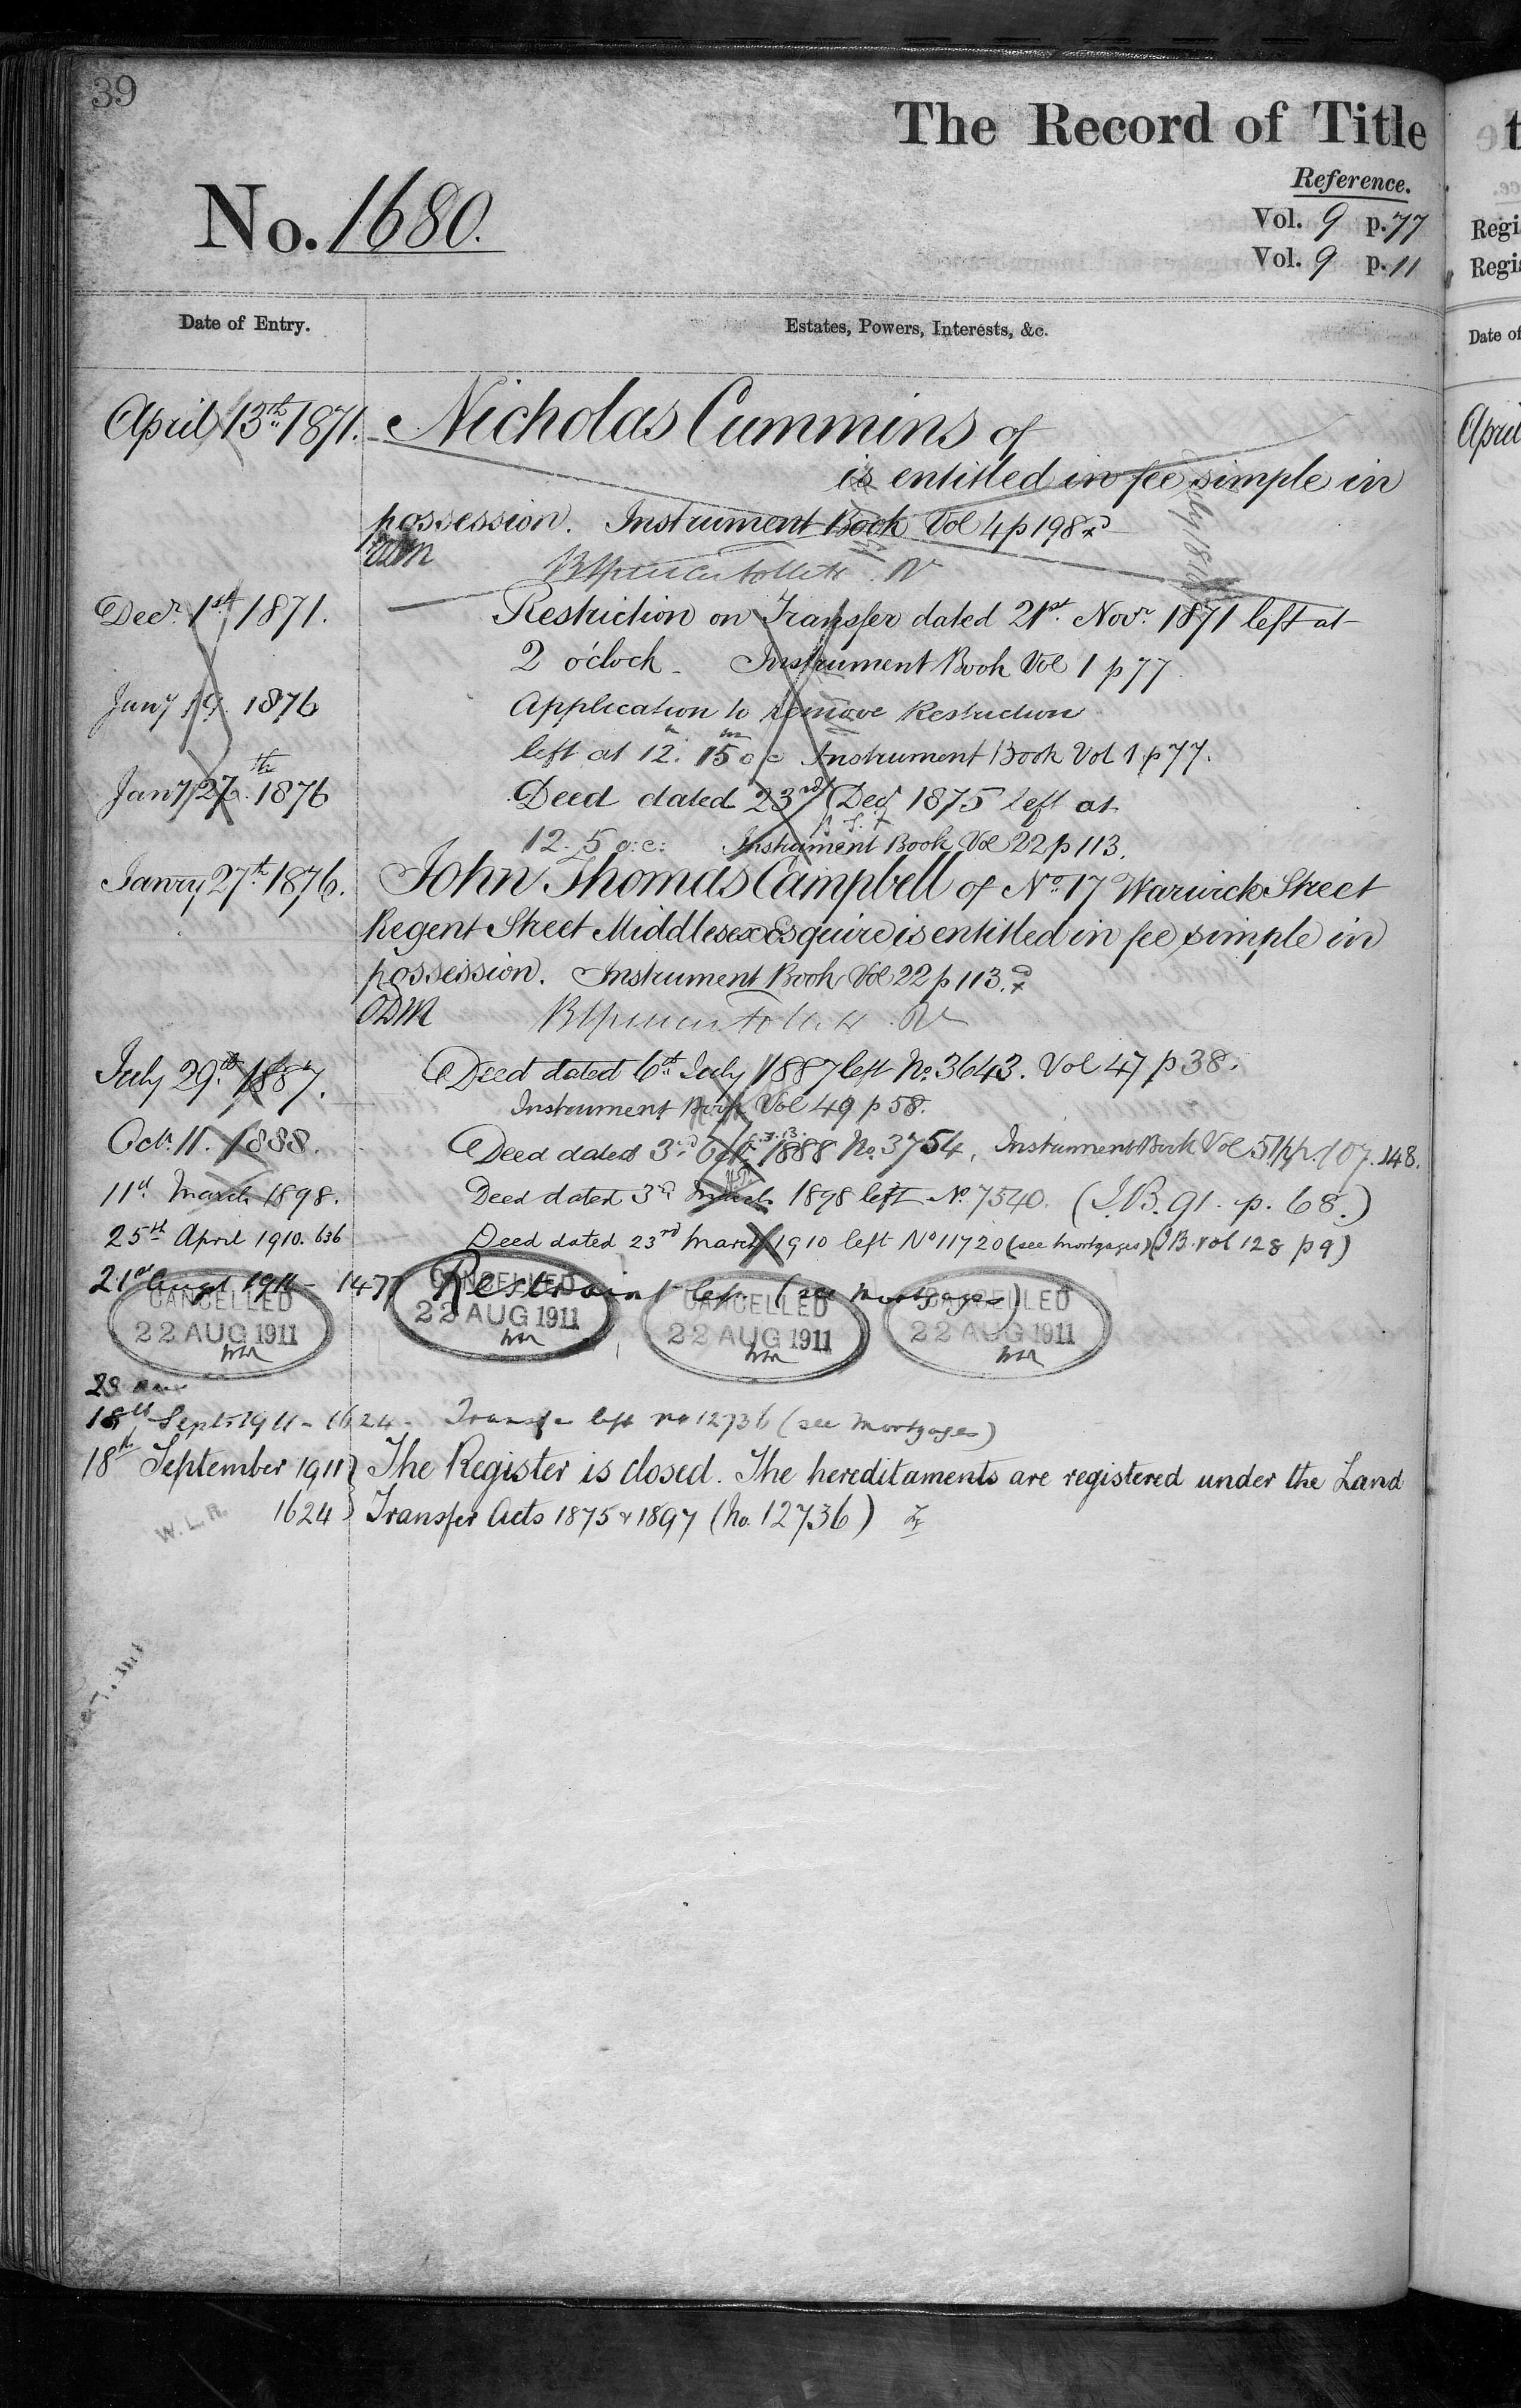 39
The Record of Title
Reference.
No. 1680.
Vol. 9 p. 77
Vol. 9 p. 11
Date of Entry.
Estates, Powers, Interests, &c.
April 13th 1871. Nicholas Cummins of
is entitled in fee simple in
possession. Instrument Book Vol 4 p 198
Decr. 1st 1871. Restriction on Transfer dated 21st. Novr. 1871 left at
2 o'clock - Instrument Book Vol 1 p 77.
Jany 19. 1876 Application to remove Restriction
left at 12. 15 o c Instrument Book Vol 1 p 77.
Jany 27th 1876 Deed dated 23rd Decr 1875 left at
12. 5 o:c: Instrument Book Vol 22 p 113.
Janry 27th 1876. John Thomas Campbell of No. 17 Warwick Street
Regent Street Middlesex Esquire is entitled in fee simple in
possession. Instrument Book Vol 22 p 113.
ODM
July 29th 1887. Deed dated 6th July 1887 left No. 3643. Vol 47 p 38.
Instrument Book Vol 49 p 58.
Octr 11. 1888. Deed dated 3rd Octr 1888 No. 3754, Instrument Book Vol 51 pp. 107. 148.
11th March 1898. Deed dated 3rd March 1898 left No. 7540. (I.B. 91. p. 68.)
25th April 1910. 636 Deed dated 23rd March 1910 left No 11720 (see Mortgages) (I B. vol 128 p 9)
21st Augt 1911 - 1477 Restraint left (see Mortgages)
CANCELLED CANCELLED CANCELLED CANCELLED
22 AUG 1911 22 AUG 1911 22 AUG 1911 22 AUG 1911
18th Sept 1911 - 1624 - Transfer left no 12736 (see Mortgages)
18th September 1911 The Register is closed. The hereditaments are registered under the Land
1624 Transfer Acts 1875 & 1897 (No. 12736)
W. L. R.
Regi
Regi
Date of
April